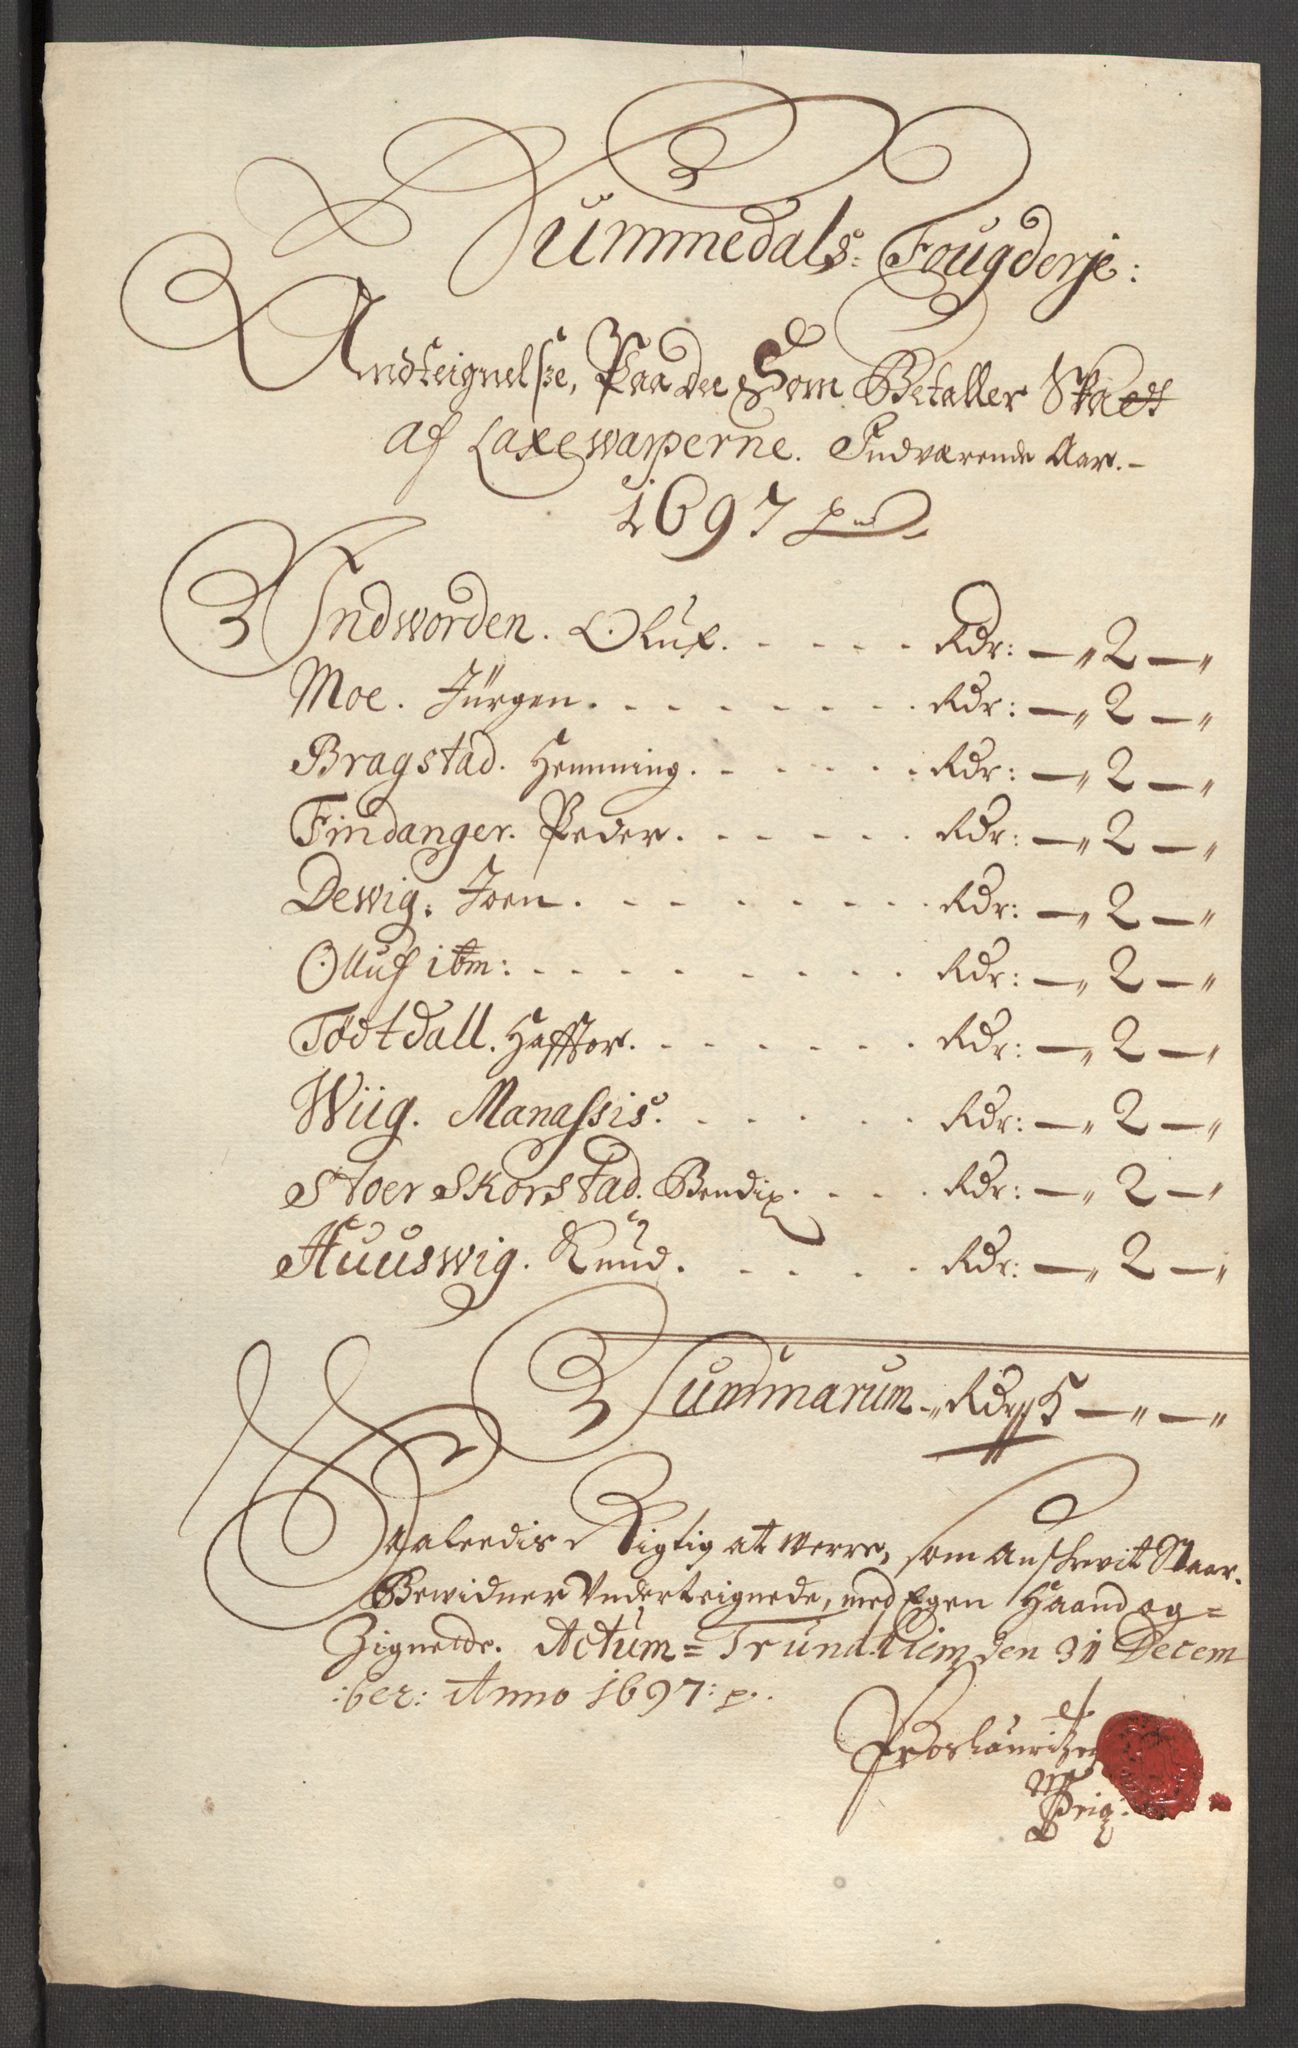 Nummedals: Fougderje:
Andteignelsse, Paa de Som Betaller Skat
af Laxewarperne. Indværende Aar. -
1697 p
Indworden. Oluf. . . . . . Rdr: — „ 2 — „
Moe. Jürgen. . . . . . . . Rdr: — „ 2 — „
Bragstad. Hemming. . . . . . Rdr: — „ 2 — „
Findanger. Peder. . . . . . Rdr: — „ 2 — „
Dewig. Joen. . . . . . . . Rdr: — „ 2 — „
Olluf ibm: . . . . . . . . Rdr: — „ 2 — „
Tødtdall. Hafftor. . . . . . . Rdr: — „ 2 — „
Wiig. Manassis. . . . . . Rdr: — „ 2 — „
Stoer Skorstad. Bendix. . . . Rdr: — „ 2 — „
Huuswig. Knud. . . . . . Rdr: — „ 2 — „
Summarum - Rdr 5 — „ — „
Saaleedis Rigtig at werre, som Anschrevit Staar.
Bewidner Underteignede, med Egen Haand og=
Zignette. Actum = Trundhiem den 31 Decem
:ber: Anno 1697: p.